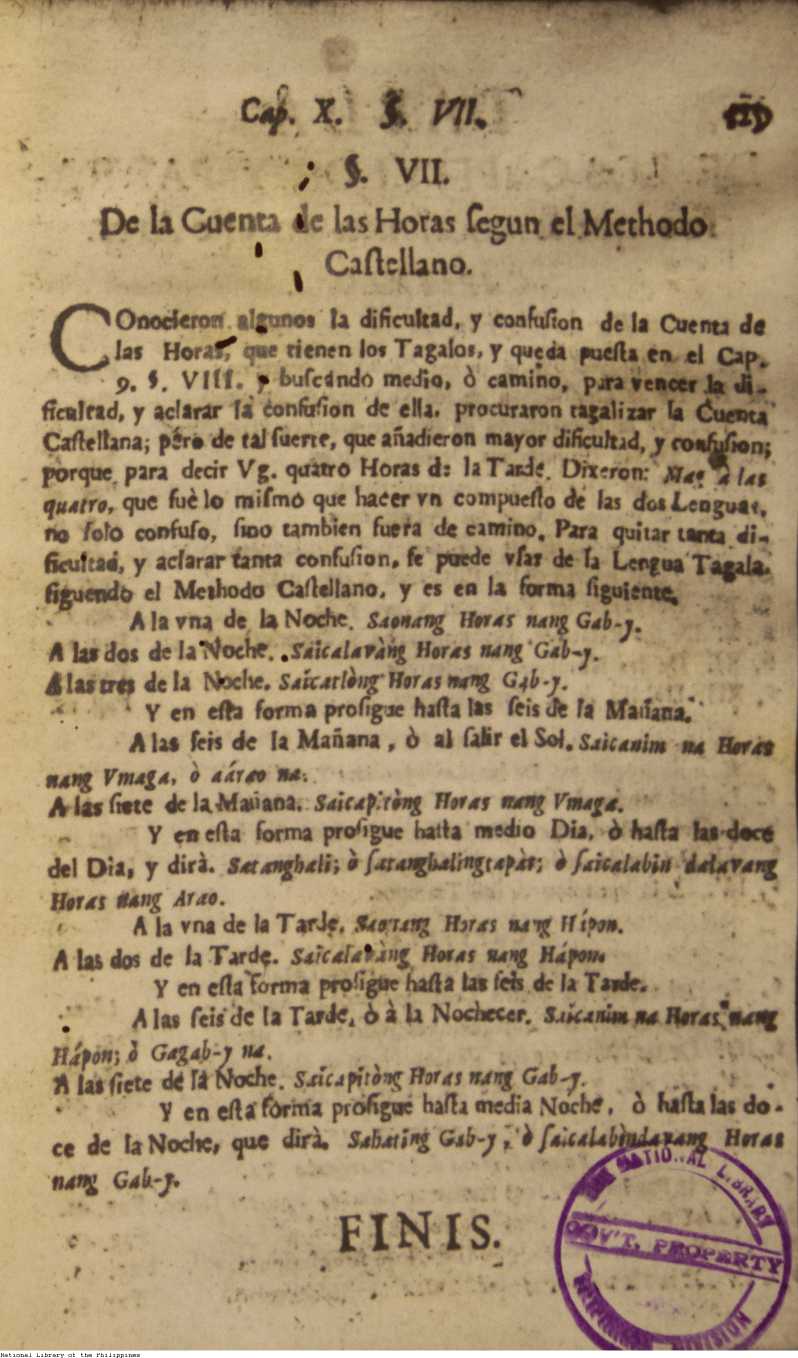 Cap. X. §. VII.
§. VII.
De la Cuenta de las Horas ſegun el Methodo
Caſtellano.
COnocieron algunos la dificultad, y confuſion de la Cuenta de
las Horas, que tienen los Tagalos, y queda pueſta en el Cap.
9. §. VIII. y buſcando medio, ò camino, para vencer la di-
ficultad, y aclarar la confuſion de ella, procuraron tagalizar la Cuenta
Caſtellana; pero de tal ſuerte, que añadieron mayor dificultad, y confuſion;
porque para decir Vg. quatro Horas de la Tarde. Dixeron: à las
quatro, que fuè lo miſmo que hacer vn compueſto de las dos Lenguas,
no ſolo confuſo, ſino tambien fuera de camino. Para quitar tanta di-
ficultad, y aclarar tanta confuſion, ſe puede vſar de la Lengua Tagala,
ſiguendo el Methodo Caſtellano, y es en la forma ſiguiente.
A la vna de la Noche. Saonang Horas nang Gab-y.
A las dos de la Noche. Saicalavàng Horas nang Gab-y.
A las tres de la Noche. Saicatlòng Horas nang Gab-y.
Y en eſta forma proſigue haſta las ſeis de la Mañana.
A las ſeis de la Mañana, ò al ſalir el Sol. Saicanim na Horas
nang Vmaga, ò aárao na.
A las ſiete de la Mañana. Saicapitòng Horas nang Vmaga.
Y en eſta forma proſigue haſta medio Dia, ò haſta las doce
del Dia, y dirà. Satanghali; ò ſatanghalingtapàt; ò ſaicalabin dalavang
Horas nang Arao.
A la vna de la Tarde. Saonang Horas nang Hápon.
A las dos de la Tarde. Saicalavàng Horas nang Hápon.
Y en eſta forma proſigue haſta las ſeis de la Tarde.
A las ſeis de la Tarde, ò à la Nochecer. Saicanim na Horas nang
Hápon; ò Gagab-y na.
A las ſiete de la Noche. Saicapitòng Horas nang Gab-y.
Y en eſta forma proſigue haſta media Noche, ò haſta las do-
ce de la Noche, que dirà. Sahating Gab-y, ò ſaicalabindavang Horas
nang Gab-y.
FINIS.
THE NATIONAL LIBRARY
GOV'T. PROPERTY
DIVISION
National Library of the Philippines